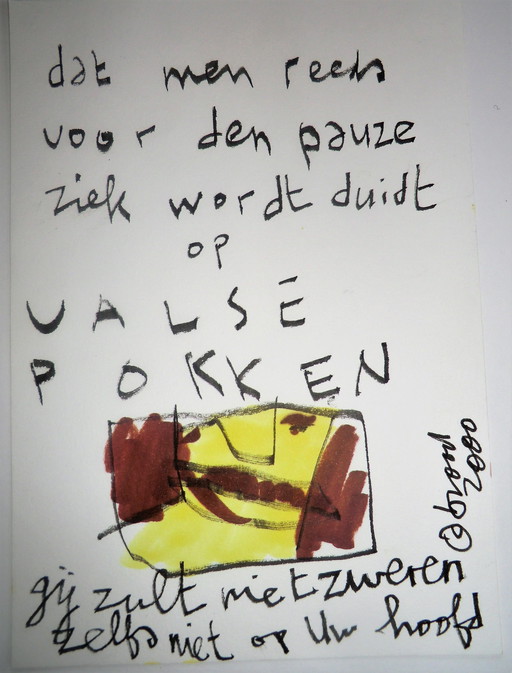 dat men reeds
voor den pauze
ziek wordt duidt
op
VALSE
POKKEN
gij zult niet zweren
zelfs niet op Uw hoofd
©
2000